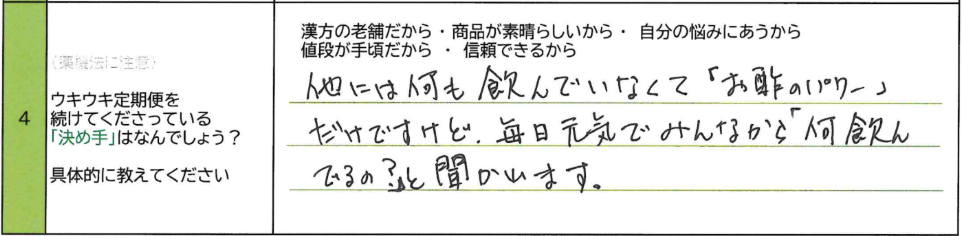 漢方の老舗だから・商品が素晴らしいから・ 自分の悩みにあうから
値段が手頃だから ・ 信頼できるから
(薬機法に注意)
4
ウキウキ定期便を
続けてくださっている
「決め手」はなんでしょう？
具体的に教えてください
他には何も飲んでいなくて「お酢のパワー」
だけですけど、毎日元気でみんなから「何飲ん
でるの?」と聞かれます。